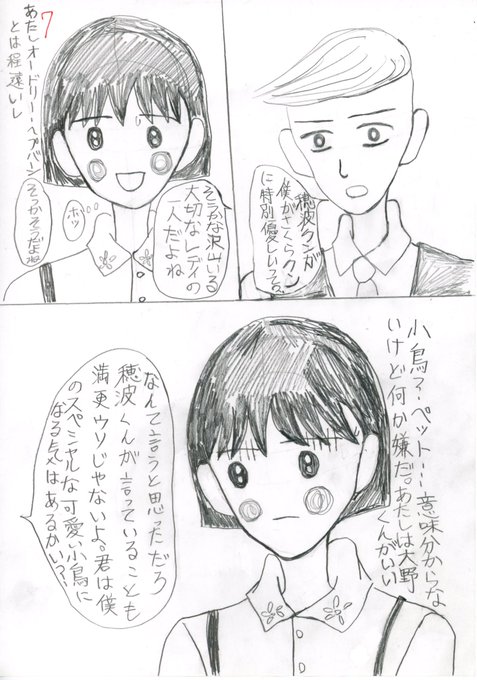 7
穂波クンが
僕がさくらクン
に特別優しいって?
そうかな沢山いる
大切なレディの
一人だよね
あたしオードリー・ヘプバーン
とは程遠いし
ホッ
そっかそうだよね
小鳥?ペット…意味分からな
いけど何か嫌だ。あたしは大野
くんがいい
なんて言うと思っただろ
穂波くんが言っていることも
満更ウソじゃないよ。君は僕
のスペシャルな可愛い小鳥に
なる気はあるかい?!